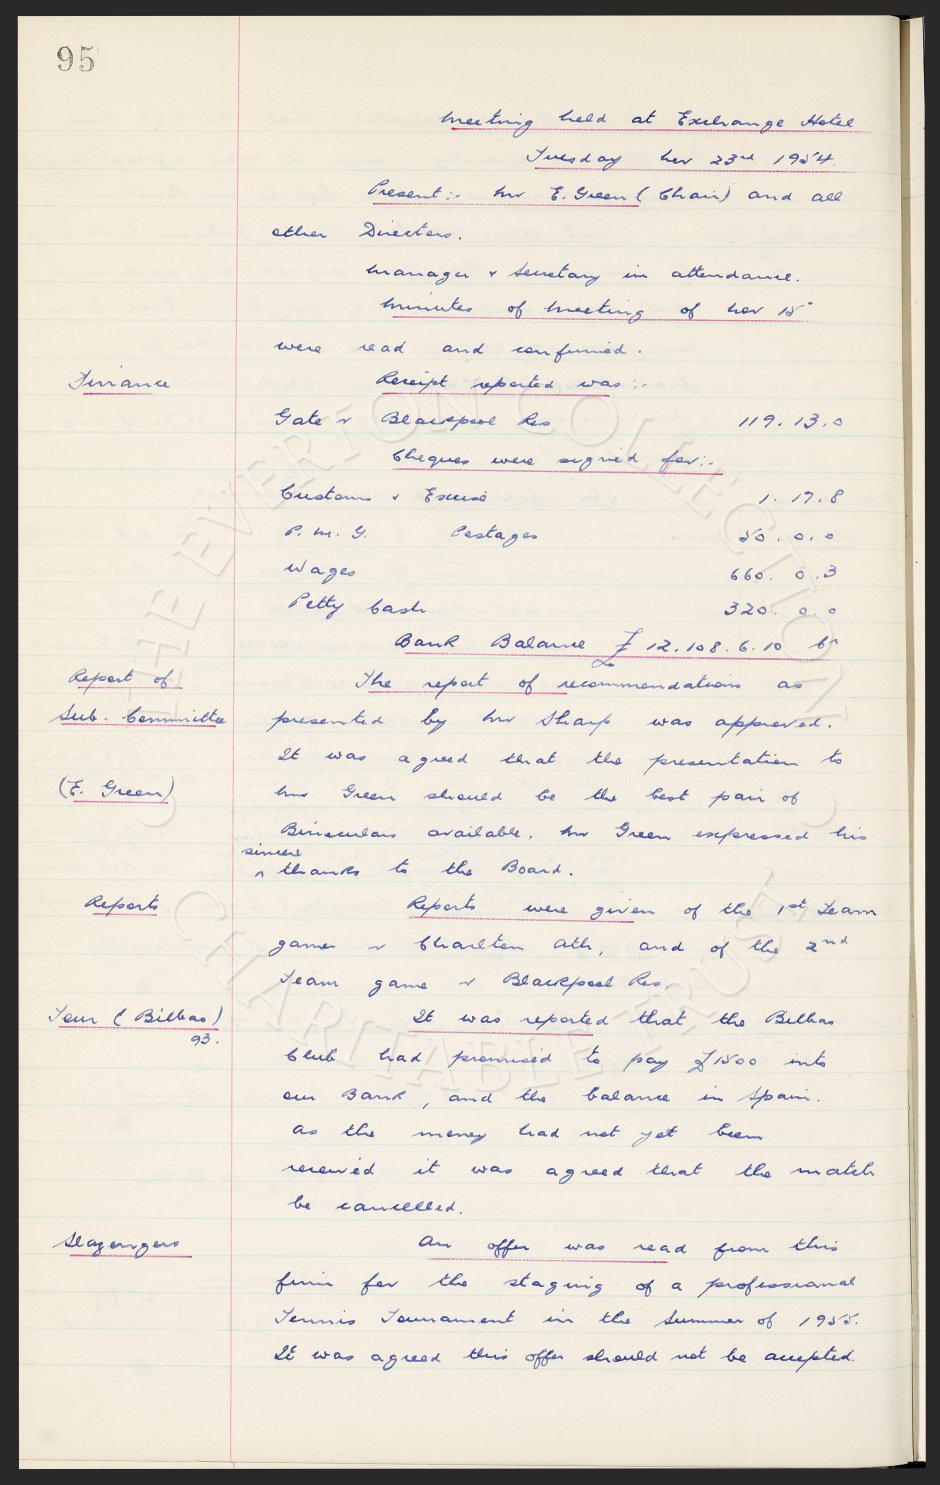 95
Meeting held at Exchange Hotel
Tuesday Nov 23rd 1954.
Present:- Mr E. Green (Chair) and all
other Directors.
Manager & Secretary in attendance.
Minutes of Meeting of Nov 15"
were read and confirmed.
Finance Receipt reported was:-
Gate v Blackpool Res 119. 13. 0
Cheques were signed for:-
Customs & Excise 1. 17. 8
P. M. G. Postages 50. 0. 0
Wages 660. 0. 3
Petty Cash 320. 0. 0
Bank Balance £12.108. 6. 10 Cr
Report of The report of recommendations as
Sub. Committee presented by Mr Sharp was approved.
It was agreed that the presentation to
(E. Green) Mr Green should be the best pair of
Binoculars available. Mr Green expressed his
sincere
^ thanks to the Board.
Reports Reports were given of the 1st Team
game v Charlton Ath, and of the 2nd
Team game v Blackpool Res.
Tour (Bilbao) It was reported that the Bilbao
93.
Club had promised to pay £1500 into
our Bank, and the balance in Spain.
As the money had not yet been
received it was agreed that the match
be cancelled.
Slazengers An offer was read from this
firm for the staging of a professional
Tennis Tournament in the Summer of 1955.
It was agreed this offer should not be accepted.
THE EVERTON COLLECTION
CHARITABLE TRUST